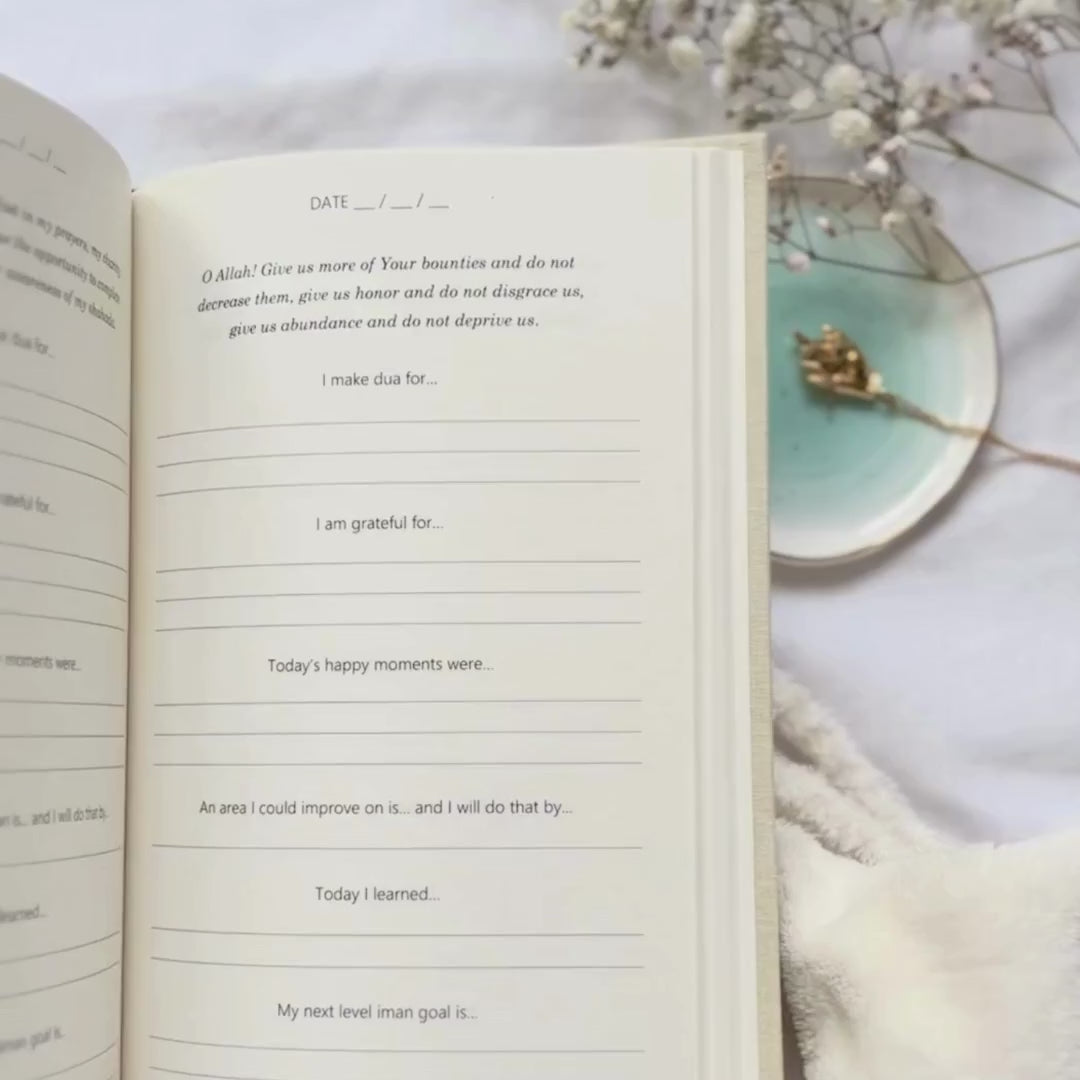 __/__/__
in my prayers, my
the opportunity to
awareness of my
dua for...
grateful for...
moments were...
is... and I will do that by...
learned...
iman goal is...
DATE __ / __ / __
O Allah! Give us more of Your bounties and do not
decrease them, give us honor and do not disgrace us,
give us abundance and do not deprive us.
I make dua for...
I am grateful for...
Today's happy moments were...
An area I could improve on is... and I will do that by...
Today I learned...
My next level iman goal is...